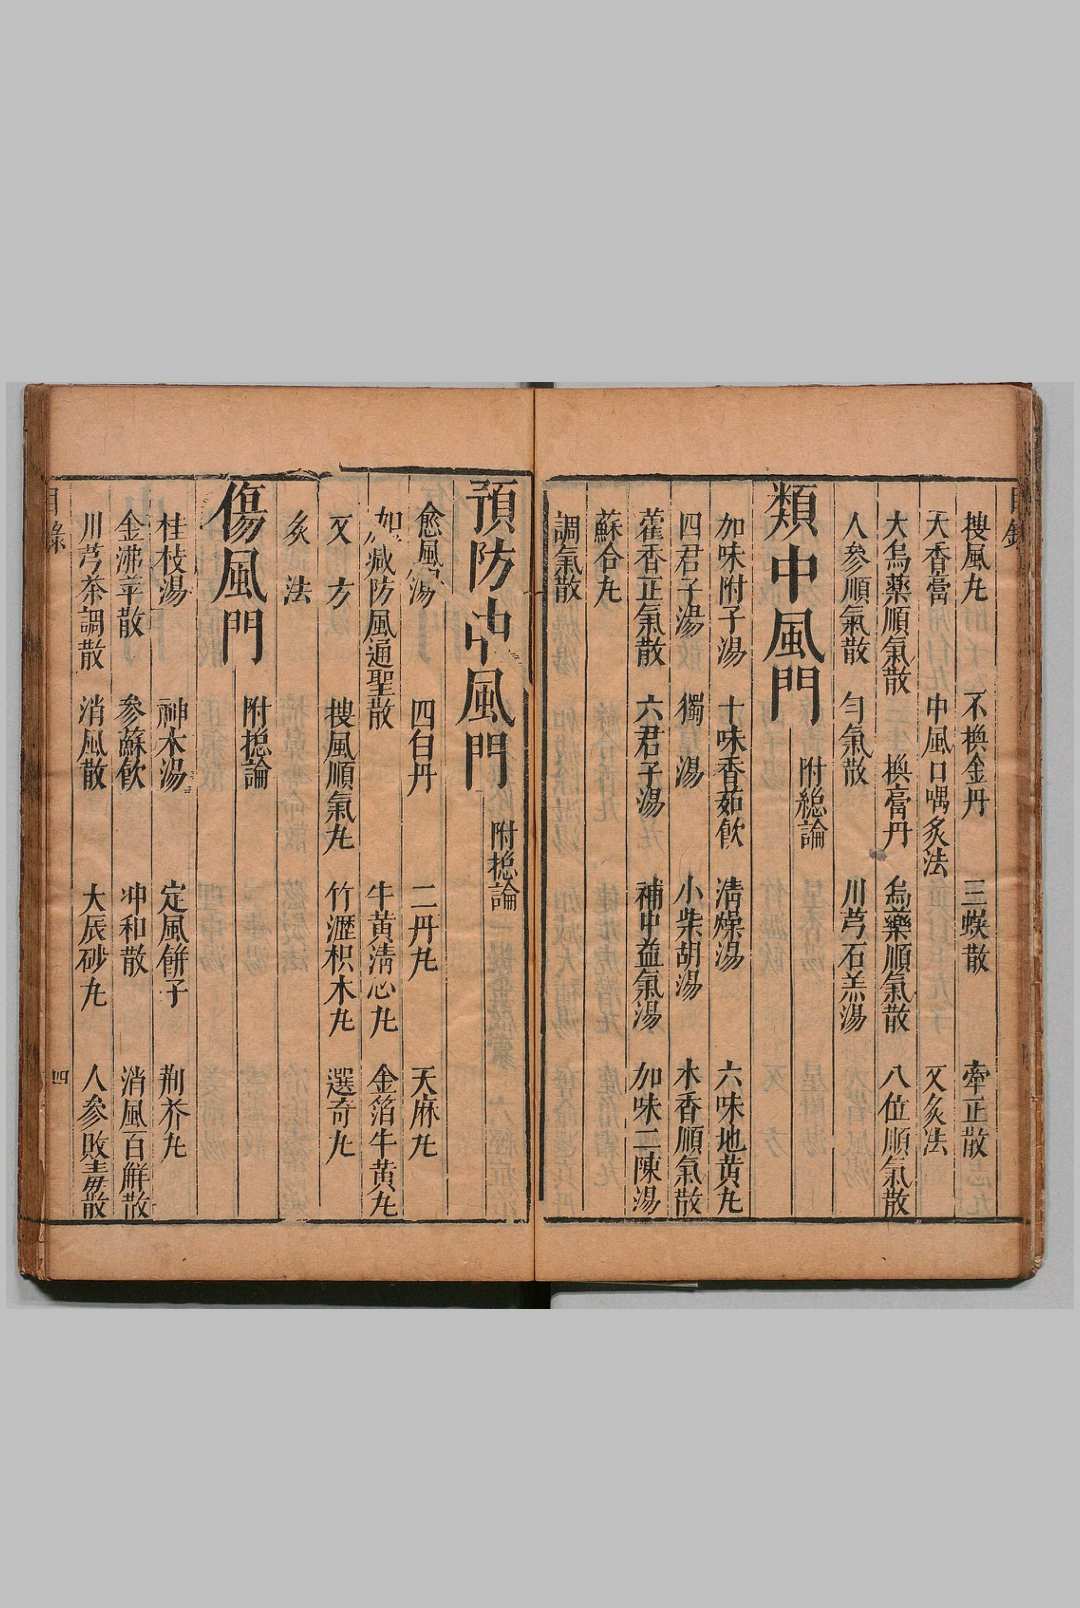 目錄
搜風丸 不換金丹 三蜈散 牽正散
天香膏 中風口喎炙法 又炙法
大烏藥順氣散 換膏丹 烏藥順氣散 八位順氣散
人參順氣散 勻氣散 川芎石羔湯
類中風門 附總論
加味附子湯 十味香茹飲 清燥湯 六味地黃丸
四君子湯 獨湯 小柴胡湯 木香順氣散
藿香正氣散 六君子湯 補中益氣湯 加味二陳湯
蘇合丸
調氣散
預防中風門 附摠論
愈風湯 四白丹 二丹丸 天麻丸
加減防風通聖散 牛黃清心丸 金箔牛黃丸
又方 搜風順氣丸 竹瀝枳木丸 選奇丸
炙法
傷風門 附摠論
桂枝湯 神木湯 定風餅子 荊芥丸
金沸草散 參蘇飲 冲和散 消風百解散
川芎茶調散 消風散 大辰砂丸 人參敗毒散
目錄 四